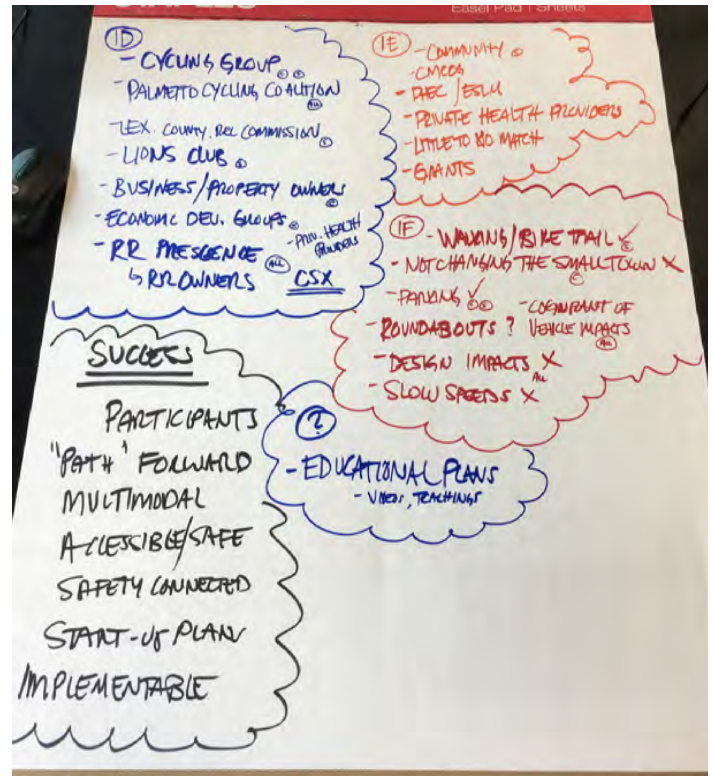 Easel Pad | Sheets
1D
- CYCLING GROUP
- PALMETTO CYCLING COALITION
ALL
- LEX. COUNTY REC COMMISSION
- LIONS CLUB
- BUSINESS/PROPERTY OWNERS
- ECONOMIC DEV. GROUPS
- PRIV. HEALTH
PROVIDERS
- RR PRESCENCE ALL
↳ RR OWNERS CSX
1E
- COMMUNITY
- CMCOG
- DHEC / ESLM
- PRIVATE HEALTH PROVIDERS
- LITTLE TO NO MATCH
- GRANTS
1F
- WALKING/BIKE TRAIL ✓
- NOT CHANGING THE SMALL TOWN X
- PARKING ✓
- COGNIZANT OF
VEHICLE IMPACTS
ALL
- ROUNDABOUTS ?
- DESIGN IMPACTS X
- SLOW SPEEDS X ALL
SUCCESS
PARTICIPANTS
"PATH" FORWARD
MULTIMODAL
ACCESSIBLE/SAFE
SAFETY CONNECTED
START-UP PLAN
IMPLEMENTABLE
?
- EDUCATIONAL PLANS
- VIDEOS, TEACHINGS